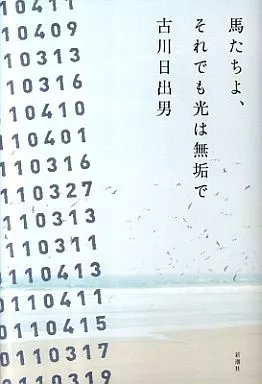 馬たちよ、
それでも光は無垢で
古川日出男
10411
10409
10313
10316
110410
110401
110316
110327
110313
110311
110413
0110411
0110415
0110317
0110319
新潮社